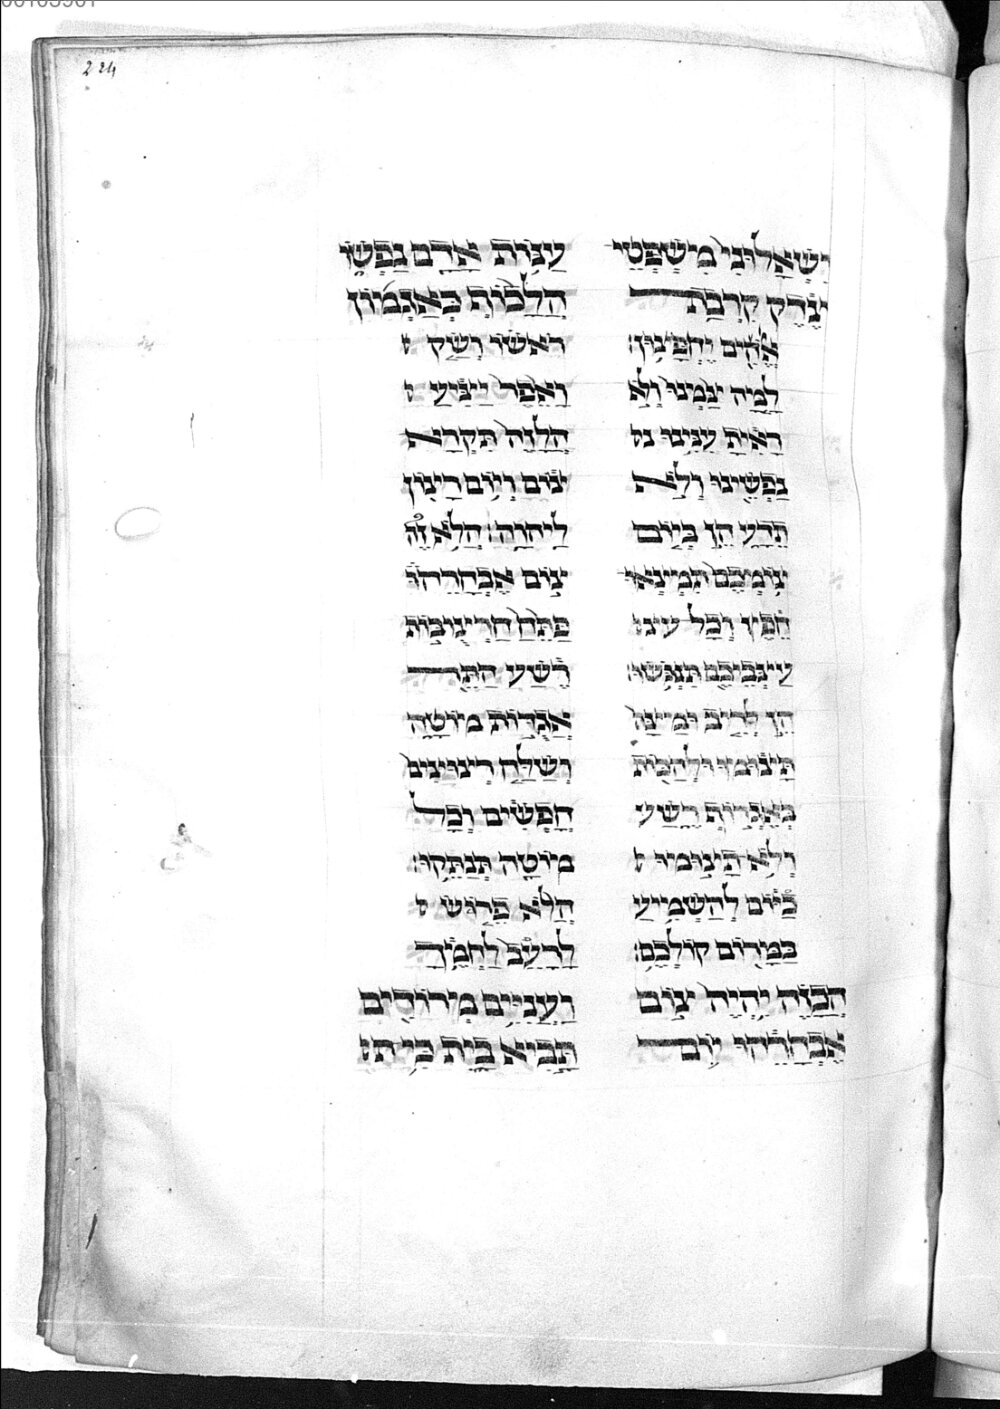 224
ישאלוני משפטי
צדק קרבת
אלהים יחפצון׃
למה צמנו ולא
ראית ענינו
נפשינו ולא
תדע הן ביום
צומכם תמצאו
חפץ וכל
עצביכם תנגשו׃
הן לריב ומצה
תצומו ולהכות
באגרוף רשע
ולא תצומו
כיום להשמיע
במרום קולכם׃
הכזה יהיה צום
אבחרהו יום
ענות אדם נפשו
הלכוף כאגמון
ראשו ושק
ואפר יציע
הלזה תקרא
צום ויום רצון
ליהוה׃ הלא זה
צום אבחרהו
פתח חרצובות
רשע התר
אגדות מוטה
ושלח רצוצים
חפשים וכל
מוטה תנתקו׃
הלא פרוש
לרעב לחמך
ועניים מרודים
תביא בית